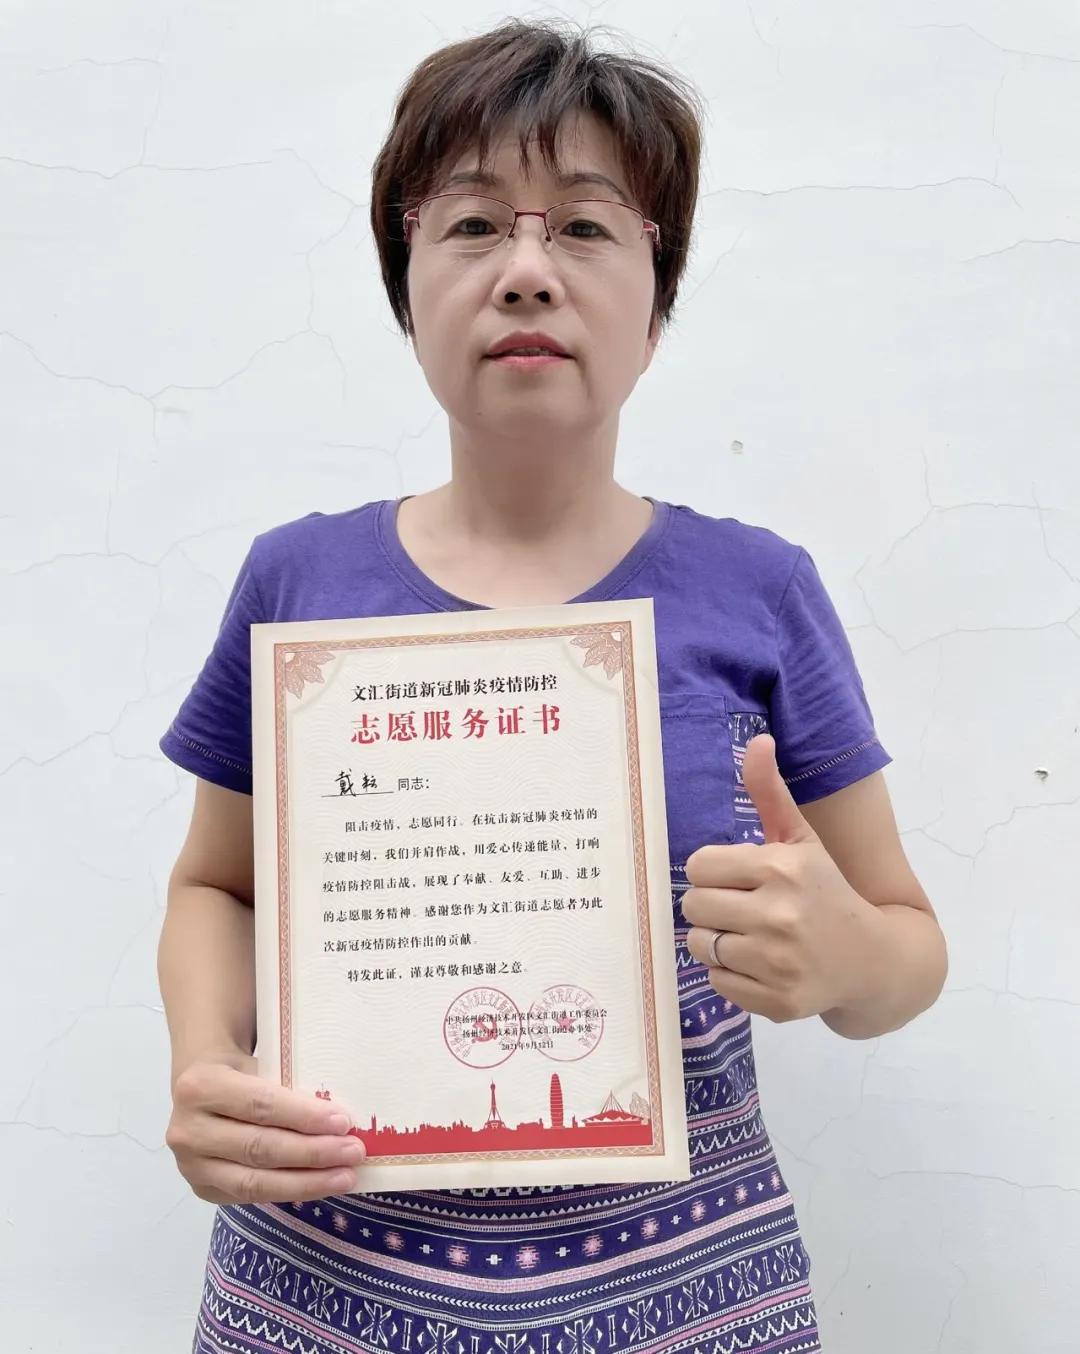 文汇街道新冠肺炎疫情防控
志愿服务证书
戴 同志：
阻击疫情，志愿同行。在抗击新冠肺炎疫情的
关键时刻，我们并肩作战，用爱心传递能量，打响
疫情防控阻击战，展现了奉献、友爱、互助、进步
的志愿服务精神。感谢您作为文汇街道志愿者为此
次新冠疫情防控作出的贡献。
特发此证，谨表尊敬和感谢之意。
中共扬州经济技术开发区文汇街道工作委员会
扬州经济技术开发区文汇街道办事处
2021年9月12日